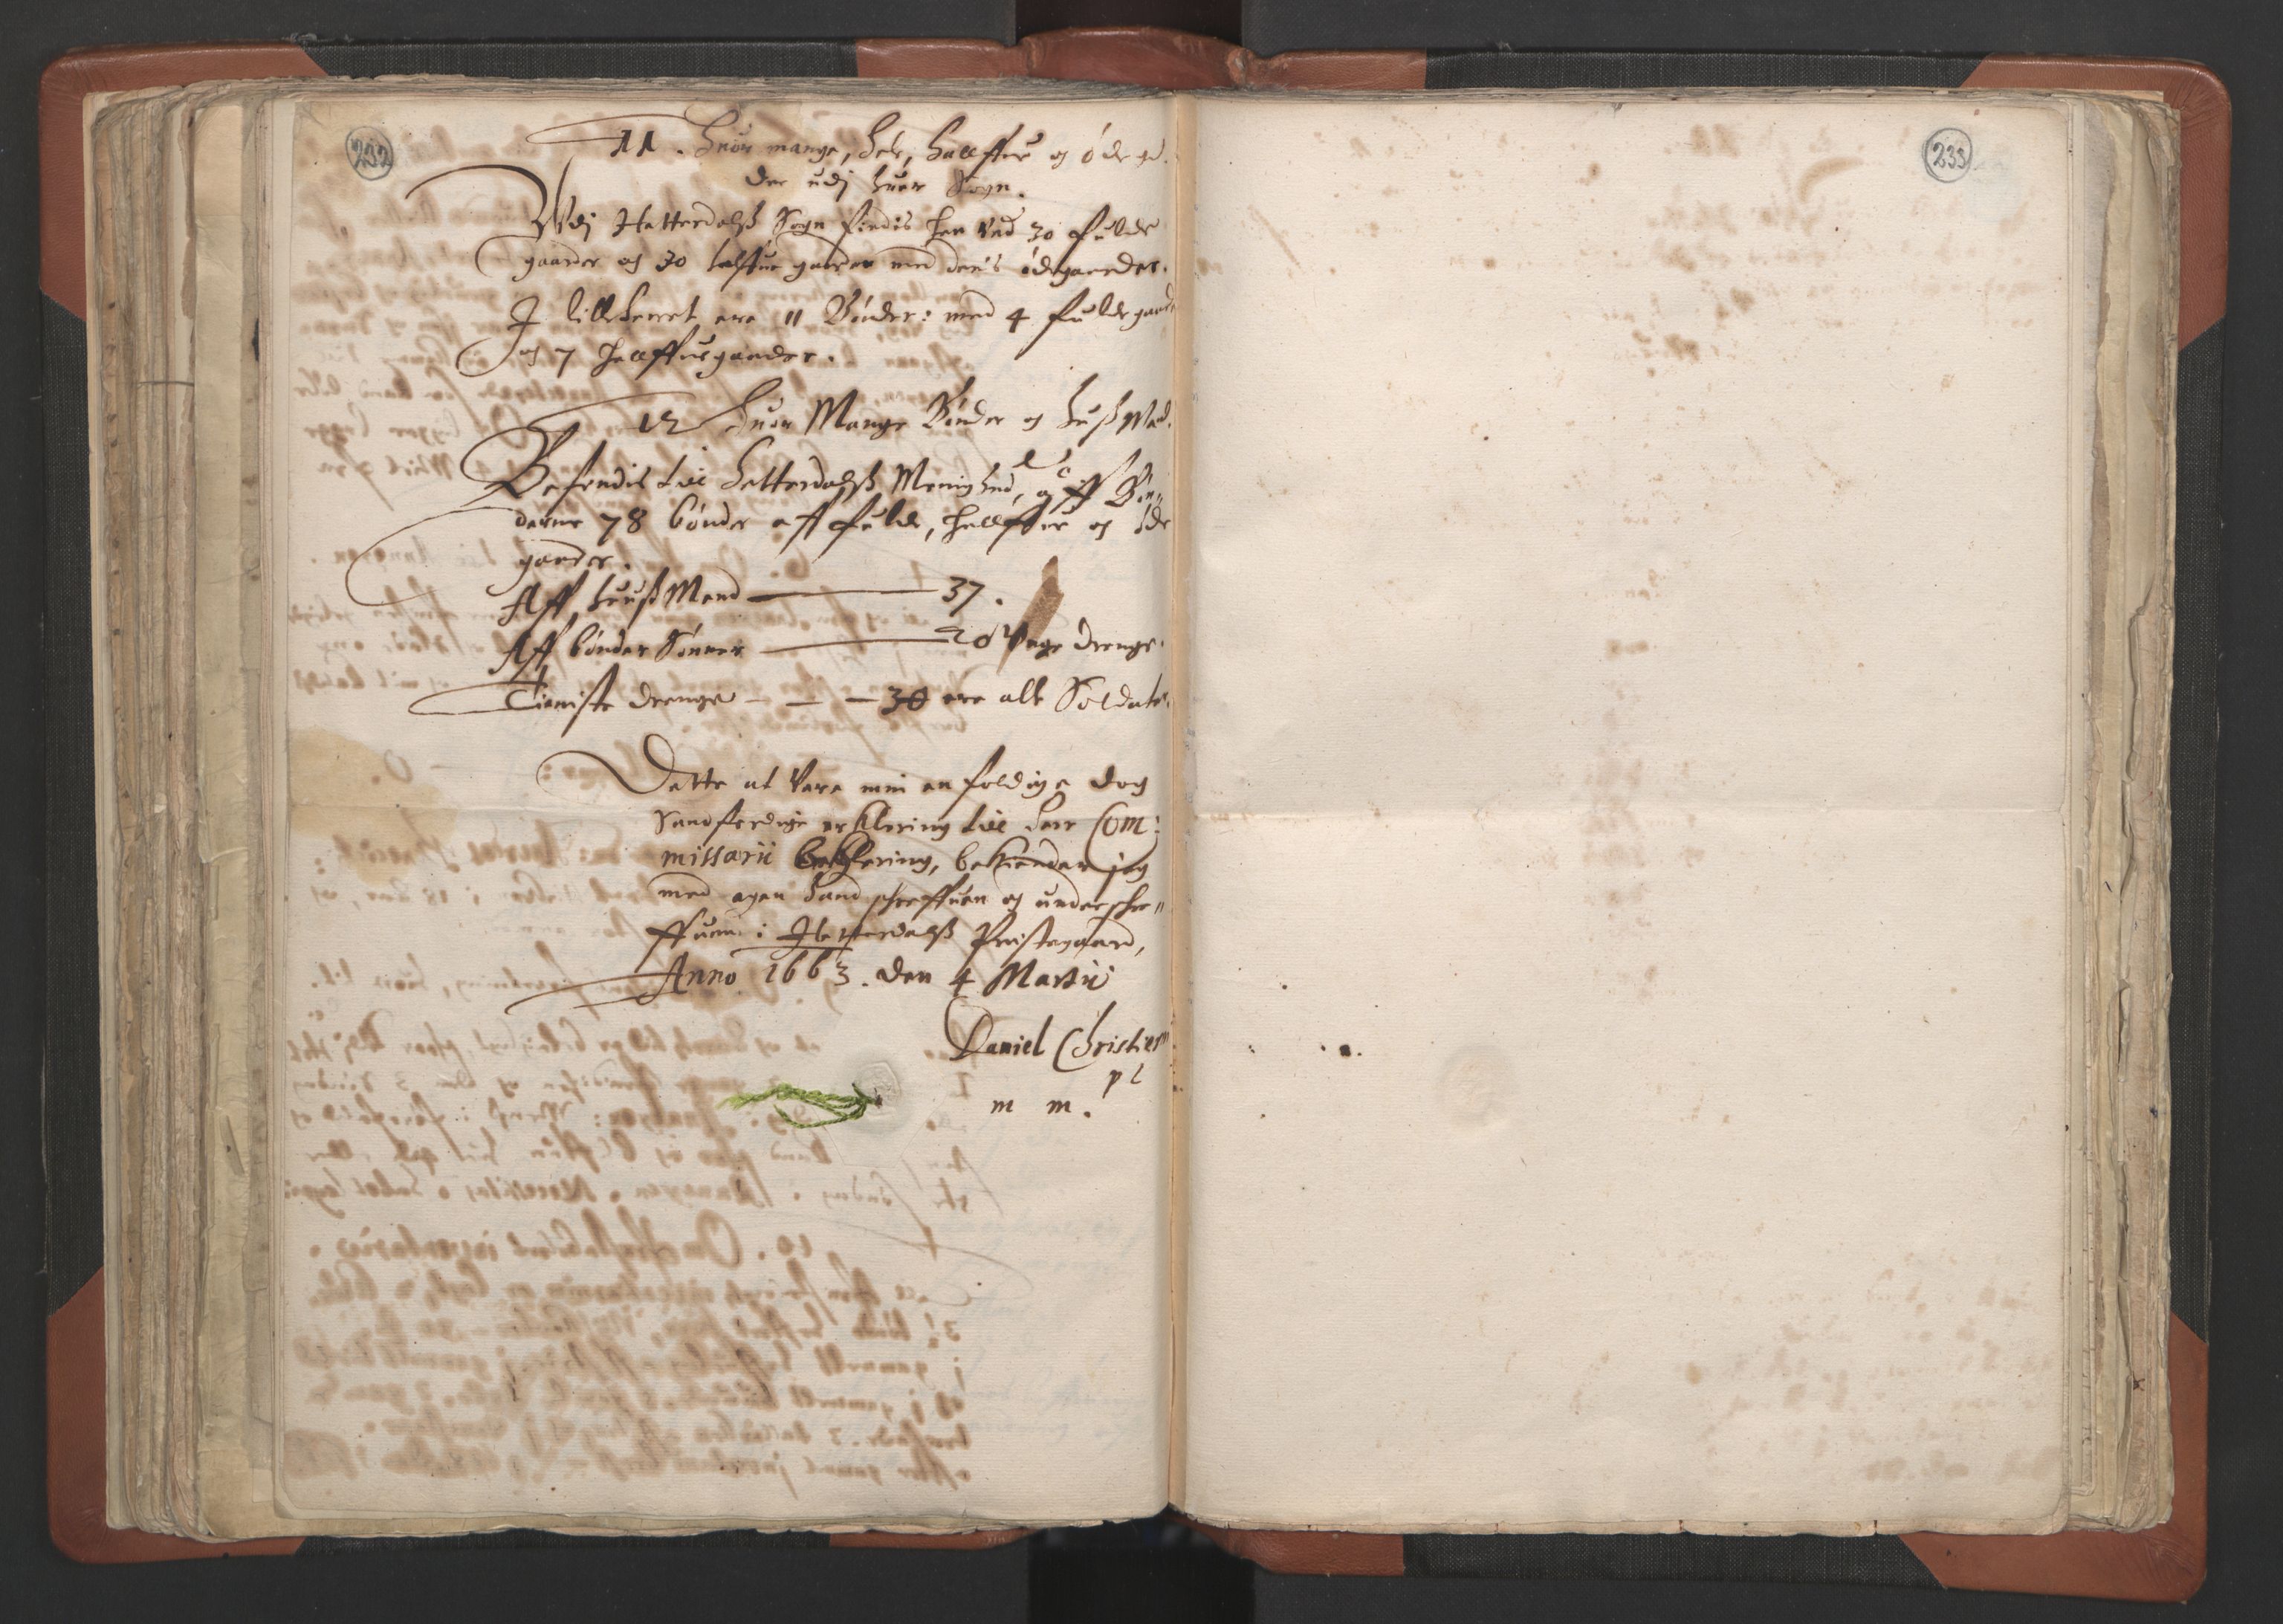 232
11. Huor mange, hele, halffue og øde gd.
der udj huer Sogn.
Vdj Hetterdalß Sogn findis her ved 30 fulde
gaarder og 30 halffue gaarder med deris ødegaarder.
J lilleherret ere 11 Bønder: med 4 fulde gaarde
og 7 halffue gaarder.
12 Huor Mange Bønder og Hußmend.
Befindis till Hetterdalß Menighed, aff Bøn¬
derne 78 bønder aff fulde, halffue og øde
gaarder.
Aff HuußMend — 37.
Aff bønder Sønner — 20 Vnge drenge.
Tieniste drenge — — — 30 ere alle Soldater.
Dette at Vere min enfoldige dog
Sandferdige erklering till Herr Com:
missarii beghering, bekiender jeg
med egen Hand schreffuen og underschre¬
ffuen i Hetterdalß Prestegaard,
Anno 1663. den 4 Martii
Daniel Christiern
m m.
233